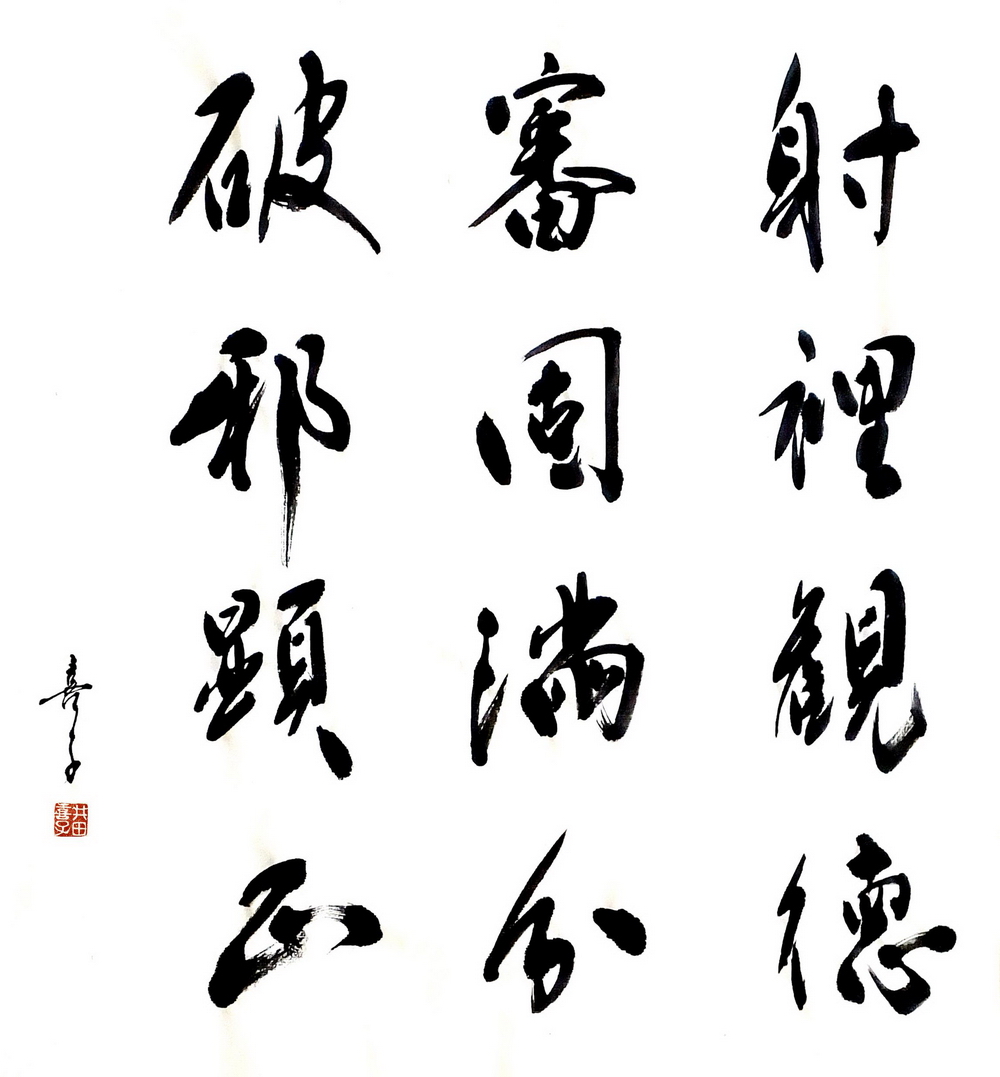 射裡観徳
審固満分
破邪顕正
喜子
井田喜子